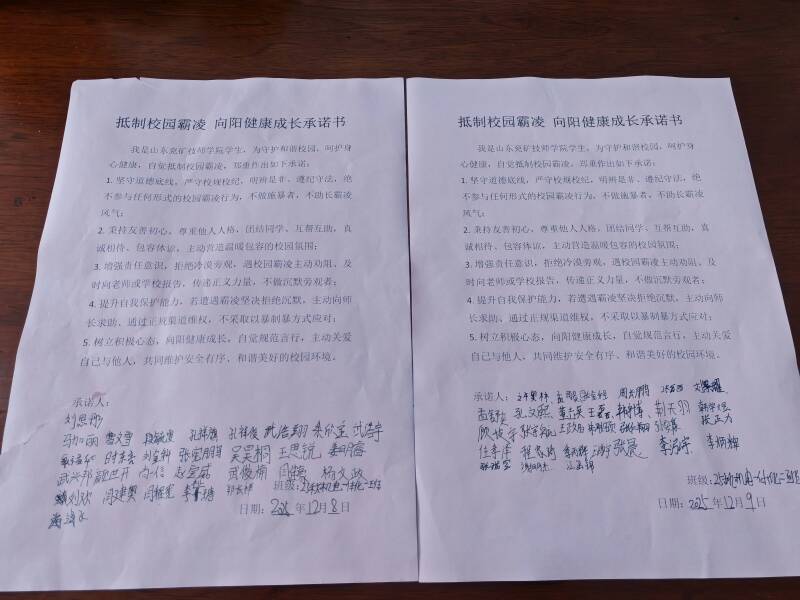 抵制校园霸凌 向阳健康成长承诺书
我是山东兖矿技师学院学生，为守护和谐校园，呵护身
心健康，自觉抵制校园霸凌，郑重作出如下承诺：
1. 坚守道德底线，严守校规校纪，明辨是非、遵纪守法，绝
不参与任何形式的校园霸凌行为，不做施暴者，不助长霸凌
风气；
2. 秉持友善初心，尊重他人人格，团结同学、互帮互助，真
诚相待、包容体谅，主动营造温暖包容的校园氛围；
3. 增强责任意识，拒绝冷漠旁观，遇校园霸凌主动劝阻、及
时向老师或学校报告，传递正义力量，不做沉默旁观者；
4. 提升自我保护能力，若遭遇霸凌坚决拒绝沉默，主动向师
长求助、通过正规渠道维权，不采取以暴制暴方式应对；
5. 树立积极心态，向阳健康成长，自觉规范言行，主动关爱
自己与他人，共同维护安全有序、和谐美好的校园环境。
承诺人：
马加丽 曹文雪 孔祥旗 孔祥俊
时圣东 刘官科 张宝朋 吴昊桐 王思锐 姜明睿
武兴邦 向信 武俊楠 周臻 杨文政
刘欢 闫建奥 闫振宽
班级：
日期：2025年12月8日
抵制校园霸凌 向阳健康成长承诺书
我是山东兖矿技师学院学生，为守护和谐校园，呵护身
心健康，自觉抵制校园霸凌，郑重作出如下承诺：
1. 坚守道德底线，严守校规校纪，明辨是非、遵纪守法，绝
不参与任何形式的校园霸凌行为，不做施暴者，不助长霸凌
风气；
2. 秉持友善初心，尊重他人人格，团结同学、互帮互助，真
诚相待、包容体谅，主动营造温暖包容的校园氛围；
3. 增强责任意识，拒绝冷漠旁观，遇校园霸凌主动劝阻、及
时向老师或学校报告，传递正义力量，不做沉默旁观者；
4. 提升自我保护能力，若遭遇霸凌坚决拒绝沉默，主动向师
长求助、通过正规渠道维权，不采取以暴制暴方式应对；
5. 树立积极心态，向阳健康成长，自觉规范言行，主动关爱
自己与他人，共同维护安全有序、和谐美好的校园环境。
承诺人：
孔文熙 荆天羽
张正力
任孝泽 程家琦 张晨 李炳辉
班级：
日期：2025年12月9日